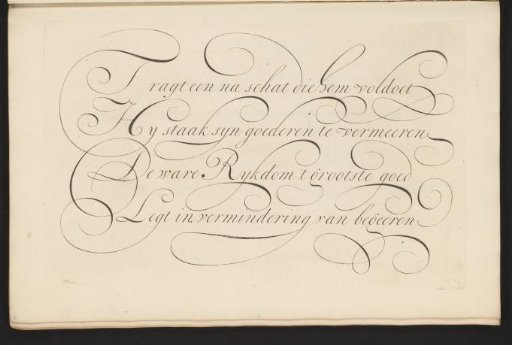 Tragt een na schat die hem voldoet
Hy staak syn goederen te vermeeren
De ware Rykdom 't grootste goed
Legt in vermindering van begeeren